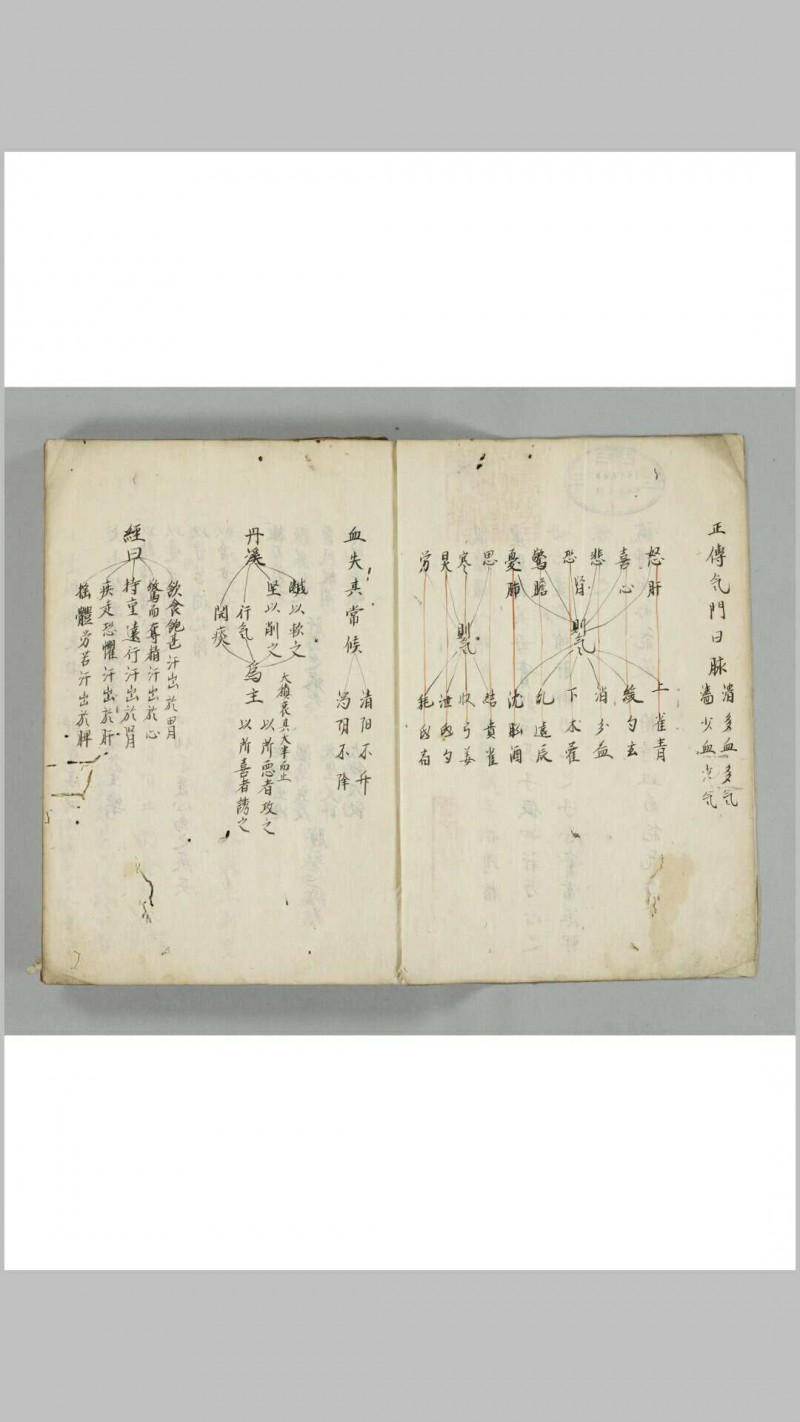 正傳気門曰脉
清多血多気
濁少血少気
怒肝
喜心
悲
恐腎
驚膽
憂肺
思
寒
炅
労
則気
則気
上雀青
緩勺玄
消分血
下木雀
乱遠辰
沈
結貴雀
収弓姜
泄
耗
血失其常候
清阳不升
濁阴不降
丹溪
鹹以軟之
堅以削之
行気
開痰
為主
大積衰其大半而止
以所悪者攻之
以所喜者誘之
經曰
飲食飽甚汗出於胃
驚而奪精汗出於心
持重遠行汗出於腎
疾走恐懼汗出於肝
揺體労苦汗出於脾